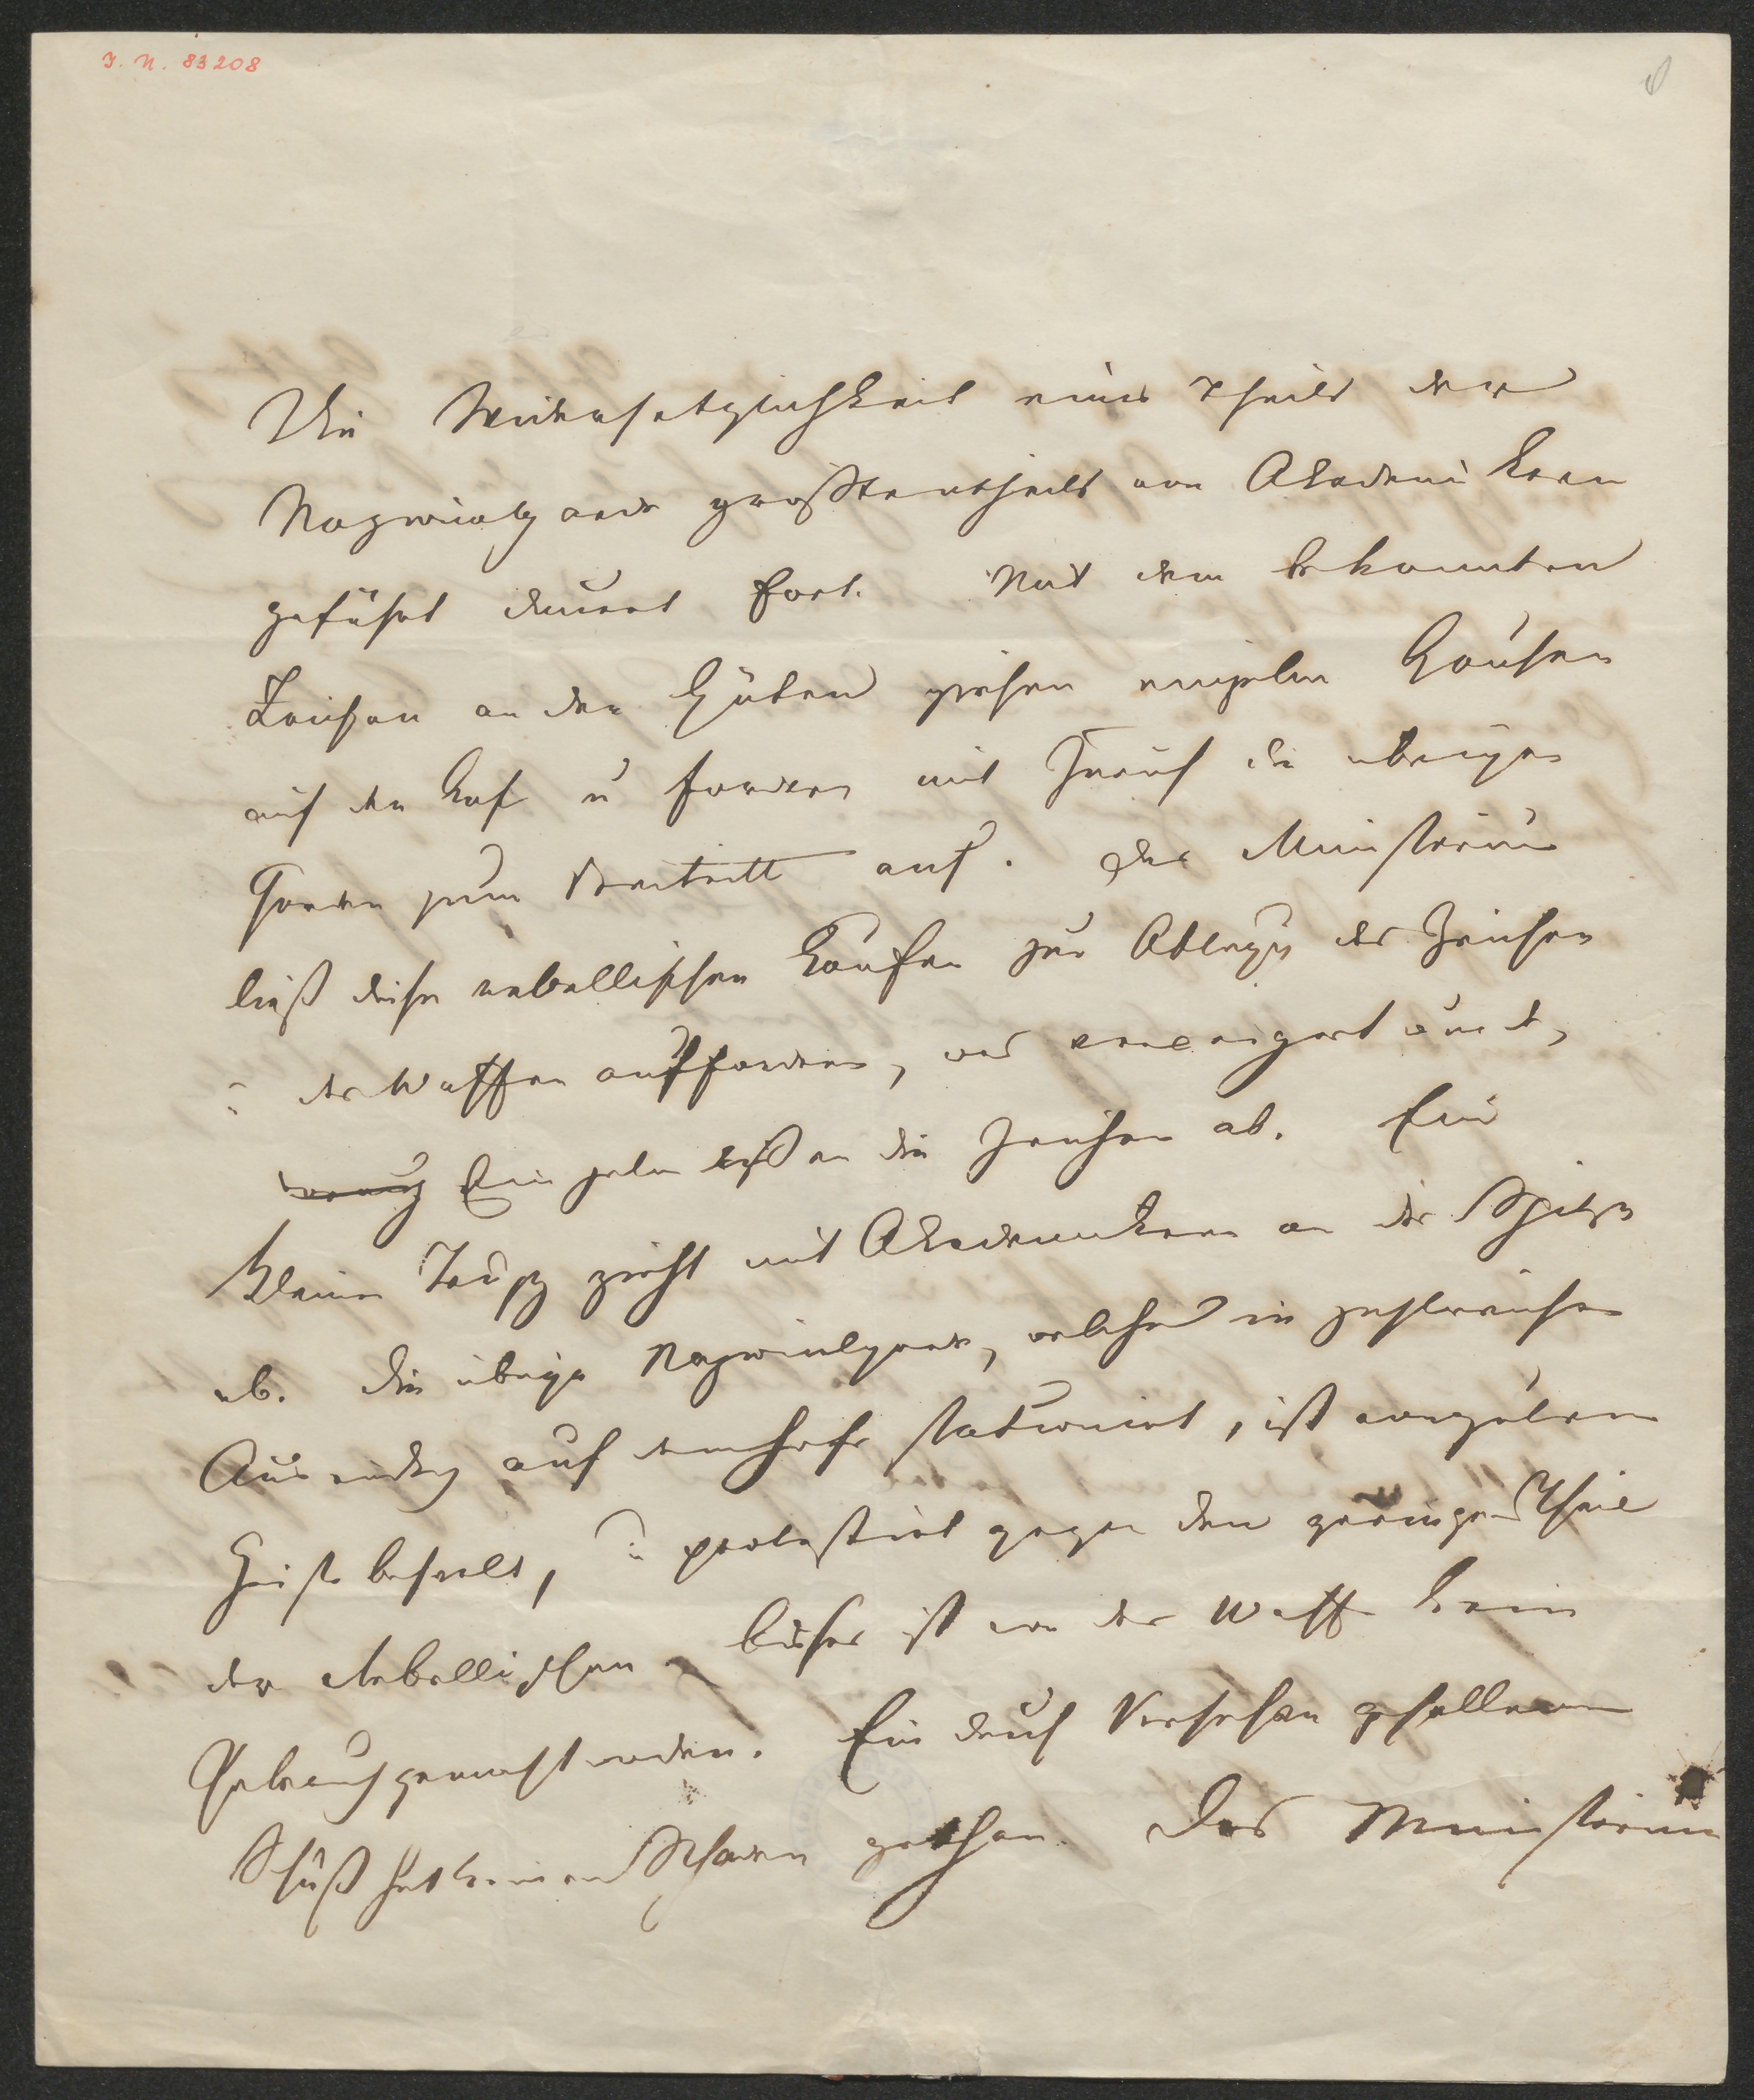 I. N. 83208
Die Widersetzlichkeit eines Theils der
Nazionalgarde größtentheils von Akademikern
geführt dauert fort. Mit dem bekannten
Zeichen an den Hüten ziehen einzelne Haufen
auf den Hof u fordern mit Zuruf die übrigen
Garden zum Beitritt auf. Das Ministerium
ließ diese rebellischen Haufen zur Ablegg der Zeichen
u der Waffen auffordern, was verweigert wurde,
Einzelne ließen die Zeichen ab. Ein
kleiner Trupp zieht mit Akademikern an der Spitze
ab. Die übrige Nazionalgarde, welche in zahlreicher
Ausrückg auf dem Hofe stationirt, ist vom guten
Geiste beseelt, u protestirt gegen den geringen Theil
der Rebellischen. Bisher ist von der Waffe kein
Gebrauch gemacht worden. Ein durch Versehen gefallener
Schuß hat keinen Schaden gethan. Das Ministerium